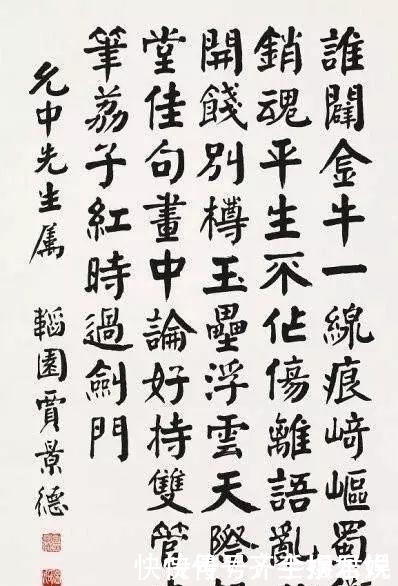 誰闢金牛一線痕崎嶇蜀
銷魂平生不作傷離語亂
開餞別樽玉壘浮雲天際
堂佳句畫中論好持雙管
筆荔子紅時過劍門
允中先生属 韜園賈景德